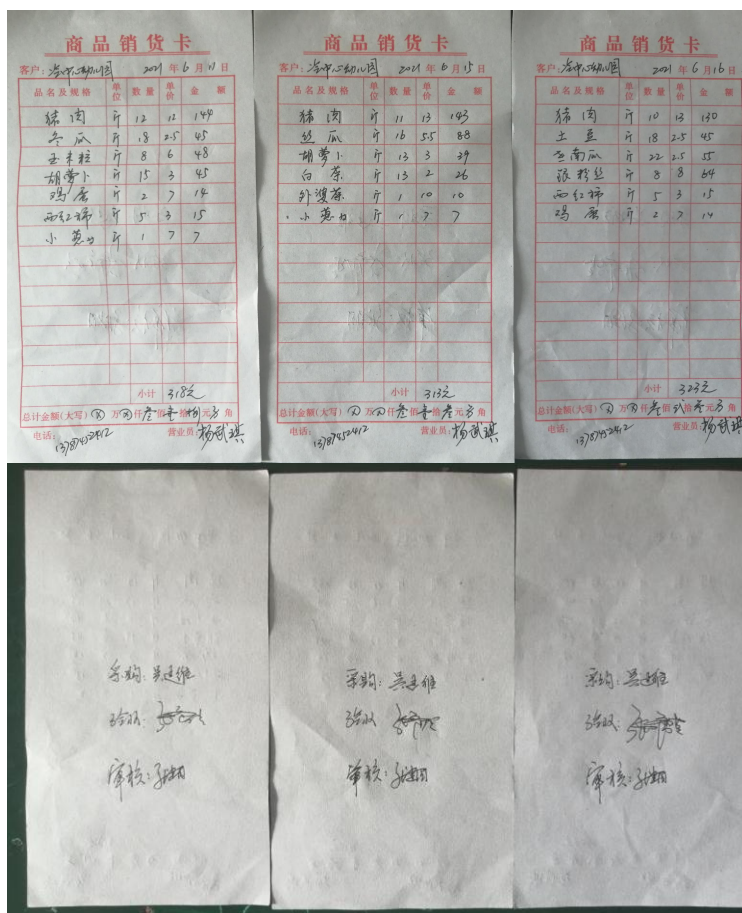 商品销货卡
客户: 洽中心幼儿园 2021年6月11日
品名及规格 单位 数量 单价 金额
猪肉 斤 12 12 144
冬瓜 斤 18 2.5 45
玉米粒 斤 8 6 48
胡萝卜 斤 15 3 45
鸡蛋 斤 2 7 14
西红柿 斤 5 3 15
小葱 斤 1 7 7
小计 318元
总计金额(大写) ⊗万⊗仟叁佰壹拾捌元 角
电话: 13787452412 营业员: 杨武琪
商品销货卡
客户: 洽中心幼儿园 2021年6月15日
品名及规格 单位 数量 单价 金额
猪肉 斤 11 13 143
丝瓜 斤 16 5.5 88
胡萝卜 斤 13 3 39
白菜 斤 13 2 26
外婆菜 斤 1 10 10
小葱 斤 1 7 7
小计 313元
总计金额(大写) ⊗万⊗仟叁佰壹拾叁元 角
电话: 13787452412 营业员: 杨武琪
商品销货卡
客户: 洽中心幼儿园 2021年6月16日
品名及规格 单位 数量 单价 金额
猪肉 斤 10 13 130
土豆 斤 18 2.5 45
老南瓜 斤 22 2.5 55
银粉丝 斤 8 8 64
西红柿 斤 5 3 15
鸡蛋 斤 2 7 14
小计 323元
总计金额(大写) ⊗万⊗仟叁佰贰拾叁元 角
电话: 13787452412 营业员: 杨武琪
采购: 吴廷维
验收:
审核:
采购: 吴廷维
验收:
审核:
采购: 吴廷维
验收:
审核: